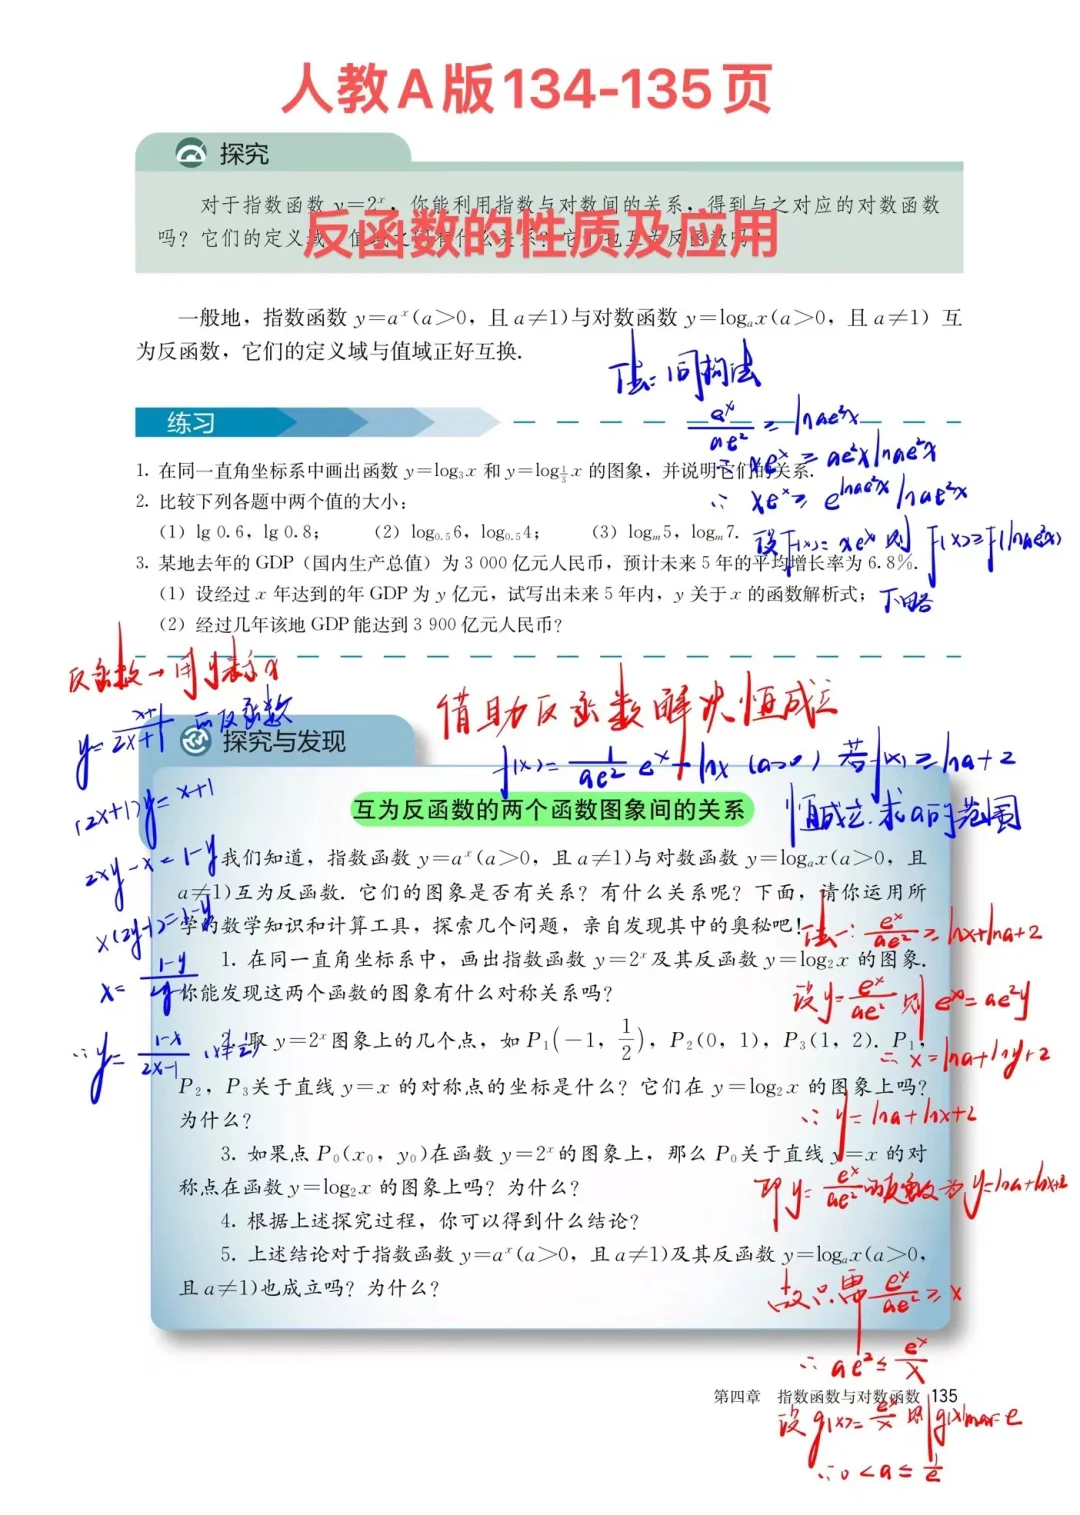 人教A版134-135页
探究
对于指数函数 y=2ˣ，你能利用指数与对数间的关系，得到与之对应的对数函数
吗？它们的定义域、值域之间有什么关系？它们也互为反函数吗？
反函数的性质及应用
一般地，指数函数 y=aˣ(a>0，且 a≠1)与对数函数 y=logₐx(a>0，且 a≠1) 互
为反函数，它们的定义域与值域正好互换.
法二:同构法
eˣ/ae² ≥ lnae²x
∴ xeˣ ≥ ae²xlnae²x
∴ xeˣ ≥ e^(lnae²x) lnae²x
设f(x)=xeˣ 则 f(x)≥f(lnae²x)
下略
练习
1. 在同一直角坐标系中画出函数 y=log₃x 和 y=log_{1/3}x 的图象，并说明它们的关系.
2. 比较下列各题中两个值的大小：
(1) lg 0.6，lg 0.8； (2) log₀.₅6，log₀.₅4； (3) logₘ5，logₘ7.
3. 某地去年的 GDP（国内生产总值）为 3 000 亿元人民币，预计未来 5 年的平均增长率为 6.8%.
(1) 设经过 x 年达到的年 GDP 为 y 亿元，试写出未来 5 年内，y 关于 x 的函数解析式；
(2) 经过几年该地 GDP 能达到 3 900 亿元人民币？
反函数→用y表示x
y=(x+1)/(2x+1) 的反函数
(2x+1)y=x+1
2xy-x=1-y
x(2y-1)=1-y
x=(1-y)/
∴ y=(1-x)/(2x-1)
借助反函数解决恒成立
f(x)=1/(ae²) eˣ-lnx (a>0) 若f(x)≥lna+2
恒成立.求a的范围
探究与发现
互为反函数的两个函数图象间的关系
我们知道，指数函数 y=aˣ(a>0，且 a≠1)与对数函数 y=logₐx(a>0，且
a≠1)互为反函数. 它们的图象是否有关系？有什么关系呢？下面，请你运用所
学的数学知识和计算工具，探索几个问题，亲自发现其中的奥秘吧！
1. 在同一直角坐标系中，画出指数函数 y=2ˣ及其反函数 y=log₂x 的图象.
你能发现这两个函数的图象有什么对称关系吗？
2. 取 y=2ˣ图象上的几个点，如 P₁(-1，1/2)，P₂(0，1)，P₃(1，2). P₁，
P₂，P₃关于直线 y=x 的对称点的坐标是什么？它们在 y=log₂x 的图象上吗？
为什么？
3. 如果点 P₀(x₀，y₀)在函数 y=2ˣ的图象上，那么 P₀关于直线 y=x 的对
称点在函数 y=log₂x 的图象上吗？为什么？
4. 根据上述探究过程，你可以得到什么结论？
5. 上述结论对于指数函数 y=aˣ(a>0，且 a≠1)及其反函数 y=logₐx(a>0，
且 a≠1)也成立吗？为什么？
法一: eˣ/ae² ≥ lnx+lna+2
设y=eˣ/ae² 则 eˣ=ae²y
∴ x=lna+lny+2
∴ y=lna+lnx+2
即y=eˣ/ae² 的反函数为 y=lna+lnx+2
故只需 eˣ/ae² ≥ x
∴ ae² ≤ eˣ/x
第四章 指数函数与对数函数 135
设g(x)=eˣ/x 则 g(x)=e
∴ 0<a≤1/e